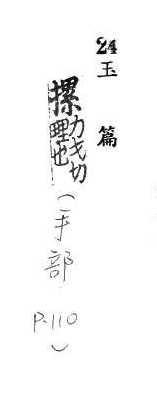 24
玉篇
摞力戈切
理也
（手部
P.110）